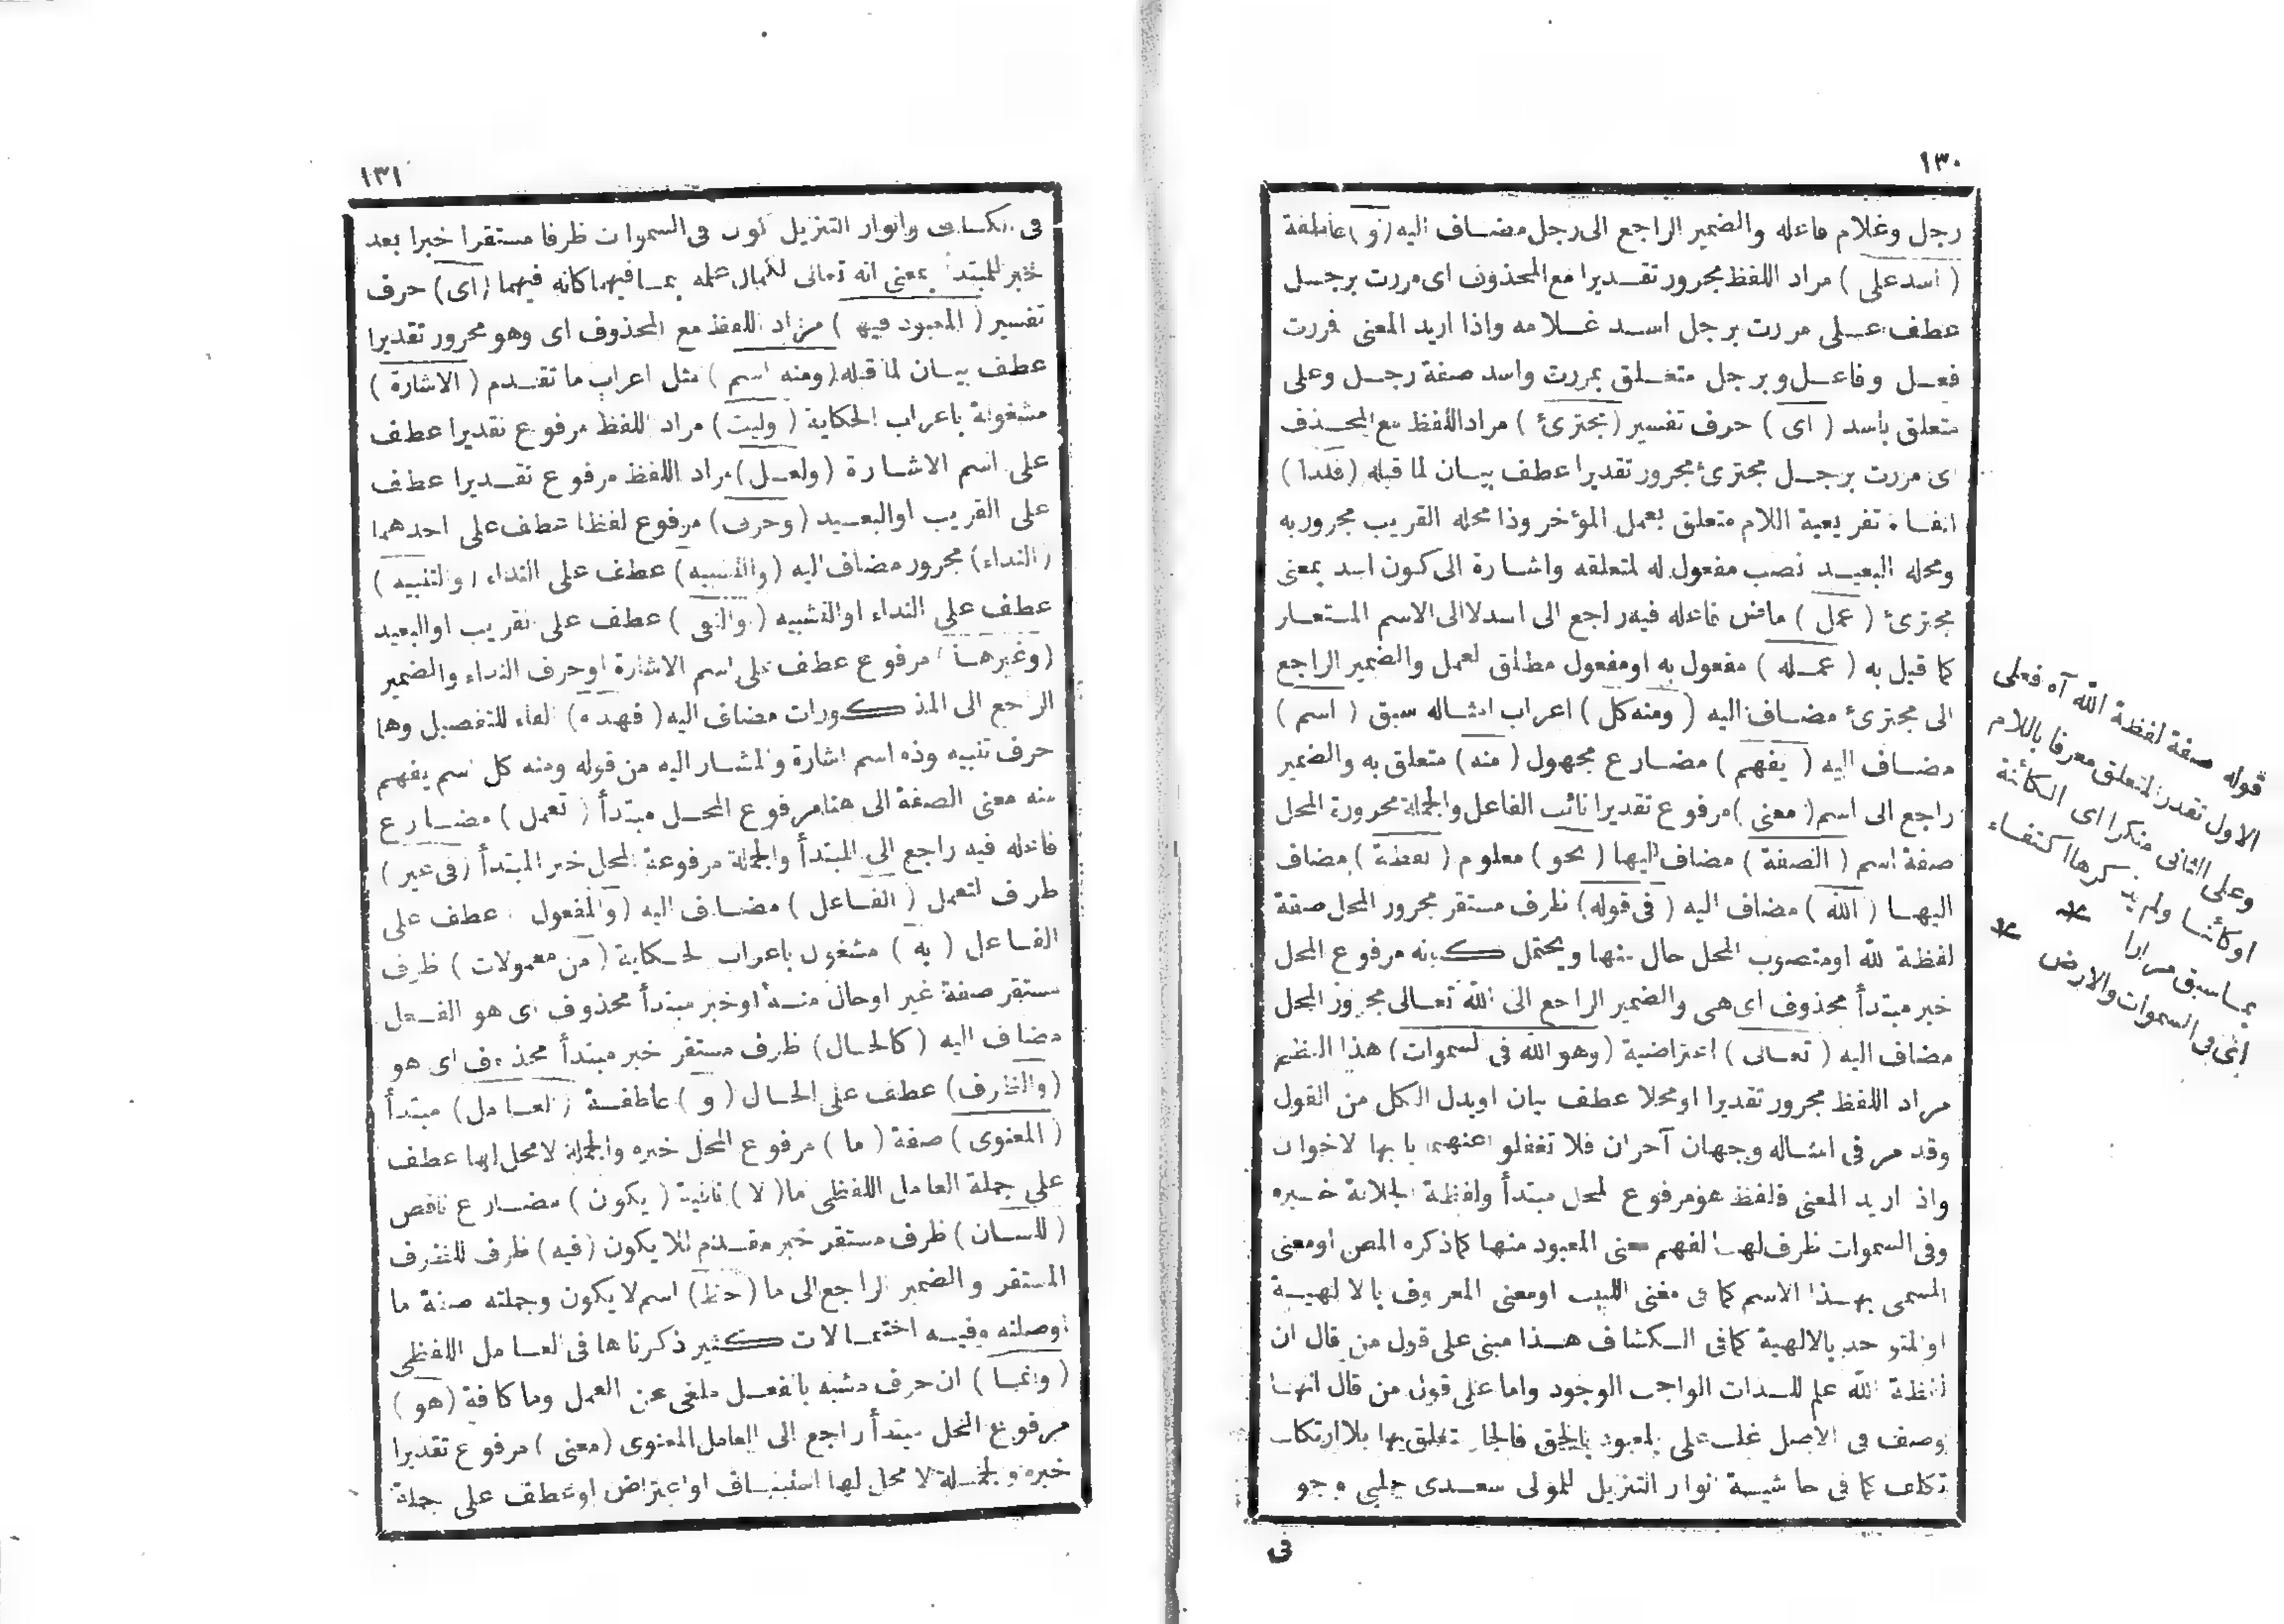 ١٣٠
رجل وغلام فاعله والضمير الراجع الى رجل مضاف اليه (و) عاطفة
(اسد على) مراد اللفظ مجرور تقديرا مع المحذوف اى مررت برجل
عطف على مررت برجل اسد غلامه واذا اريد المعنى فررت
فعل وفاعل وبرجل متعلق بمررت واسد صفة رجل وعلى
متعلق باسد (اى) حرف تفسير (مجترئ) مراد اللفظ مع المحذف
اى مررت برجل مجترئ مجرور تقديرا عطف بيان لما قبله (فلذا)
الفاء تفريعية اللام متعلق بعمل المؤخر وذا محله القريب مجرور به
ومحله البعيد نصب مفعول له لمتعلقه واشارة الى كون اسد بمعنى
مجترئ (عمل) ماض فاعله فيه راجع الى اسد لا الى الاسم المستعار
كما قيل به (عمله) مفعول به او مفعول مطلق لعمل والضمير الراجع
الى مجترئ مضاف اليه (ومنه كل) اعراب امثاله سبق (اسم)
مضاف اليه (يفهم) مضارع مجهول (منه) متعلق به والضمير
راجع الى اسم (معنى) مرفوع تقديرا نائب الفاعل والجملة مجرورة المحل
صفة اسم (الصفة) مضاف اليها (نحو) معلوم (لفظة) مضاف
اليها (الله) مضاف اليه (فى قوله) ظرف مستقر مجرور المحل صفة
لفظة الله او منصوب المحل حال منها ويحتمل كونه مرفوع المحل
خبر مبتدأ محذوف اى هى والضمير الراجع الى الله تعالى مجرور المحل
مضاف اليه (تعالى) اعتراضية (وهو الله فى السموات) هذا النظم
مراد اللفظ مجرور تقديرا او محلا عطف بيان او بدل الكل من القول
وقد مر فى امثاله وجهان آخران فلا تغفلوا عنهما يا ايها الاخوان
واذ اريد المعنى فلفظ هو مرفوع المحل مبتدأ ولفظة الجلالة خبره
وفى السموات ظرف لها لفهم معنى المعبود منها كما ذكره المص او معنى
المسمى بهذا الاسم كما فى مغنى اللبيب او معنى المعروف بالالهية
او المتوحد بالالهية كما فى الكشاف هذا مبنى على قول من قال ان
لفظة الله علم للذات الواجب الوجود واما على قول من قال انها
وصف فى الاصل غلب على المعبود بالحق فالجار تعلق بها بلا ارتكاب
تكلف كما فى حاشية انوار التنزيل للمولى سعدى چلبى وجو
فى
قوله صفة لفظة الله آه فعلى
الاول تقدر المتعلق معرفا باللام
وعلى الثانى منكرا اى الكائنة
او كائنا ولم يذكرها اكتفاء
بما سبق مرارا *
اى فى السموات والارض *
١٣١
فى الكشاف وانوار التنزيل كون فى السموات ظرفا مستقرا خبرا بعد
خبر للمبتدأ بمعنى انه تعالى لكمال علمه بما فيهما كانه فيهما (اى) حرف
تفسير (المعبود فيها) مراد اللفظ مع المحذوف اى وهو مجرور تقديرا
عطف بيان لما قبله (ومنه اسم) مثل اعراب ما تقدم (الاشارة)
مشغولة باعراب الحكاية (وليت) مراد اللفظ مرفوع تقديرا عطف
على اسم الاشارة (ولعل) مراد اللفظ مرفوع تقديرا عطف
على القريب او البعيد (وحرف) مرفوع لفظا عطف على احدهما
(النداء) مجرور مضاف اليه (والتشبيه) عطف على النداء (والتنبيه)
عطف على النداء او التشبيه (والنفى) عطف على القريب او البعيد
(وغيرها) مرفوع عطف على اسم الاشارة او حرف النداء والضمير
الراجع الى المذكورات مضاف اليه (فهذه) الفاء للتفصيل وها
حرف تنبيه وذه اسم اشارة والمشار اليه من قوله ومنه كل اسم يفهم
منه معنى الصفة الى هنا مرفوع المحل مبتدأ (تعمل) مضارع
فاعله فيه راجع الى المبتدأ والجملة مرفوعة المحل خبر المبتدأ (فى غير)
ظرف لتعمل (الفاعل) مضاف اليه (والمفعول) عطف على
الفاعل (به) مشغول باعراب الحكاية (من معمولات) ظرف
مستقر صفة غير او حال منه او خبر مبتدأ محذوف اى هو الفعل
مضاف اليه (كالحال) ظرف مستقر خبر مبتدأ محذوف اى هو
(والظرف) عطف على الحال (و) عاطفة (العامل) مبتدأ
(المعنوى) صفة (ما) مرفوع المحل خبره والجملة لا محل لها عطف
على جملة العامل اللفظى ما (لا) نافية (يكون) مضارع ناقص
(للسان) ظرف مستقر خبر مقدم للا يكون (فيه) ظرف للظرف
المستقر والضمير الراجع الى ما (حظ) اسم لا يكون وجملته صفة ما
او صلته وفيه احتمالات كثير ذكرناها فى العامل اللفظى
(وانما) ان حرف مشبه بالفعل ملغى عن العمل وما كافة (هو)
مرفوع المحل مبتدأ راجع الى العامل المعنوى (معنى) مرفوع تقديرا
خبره والجملة لا محل لها استيناف او اعتراض او عطف على جملة